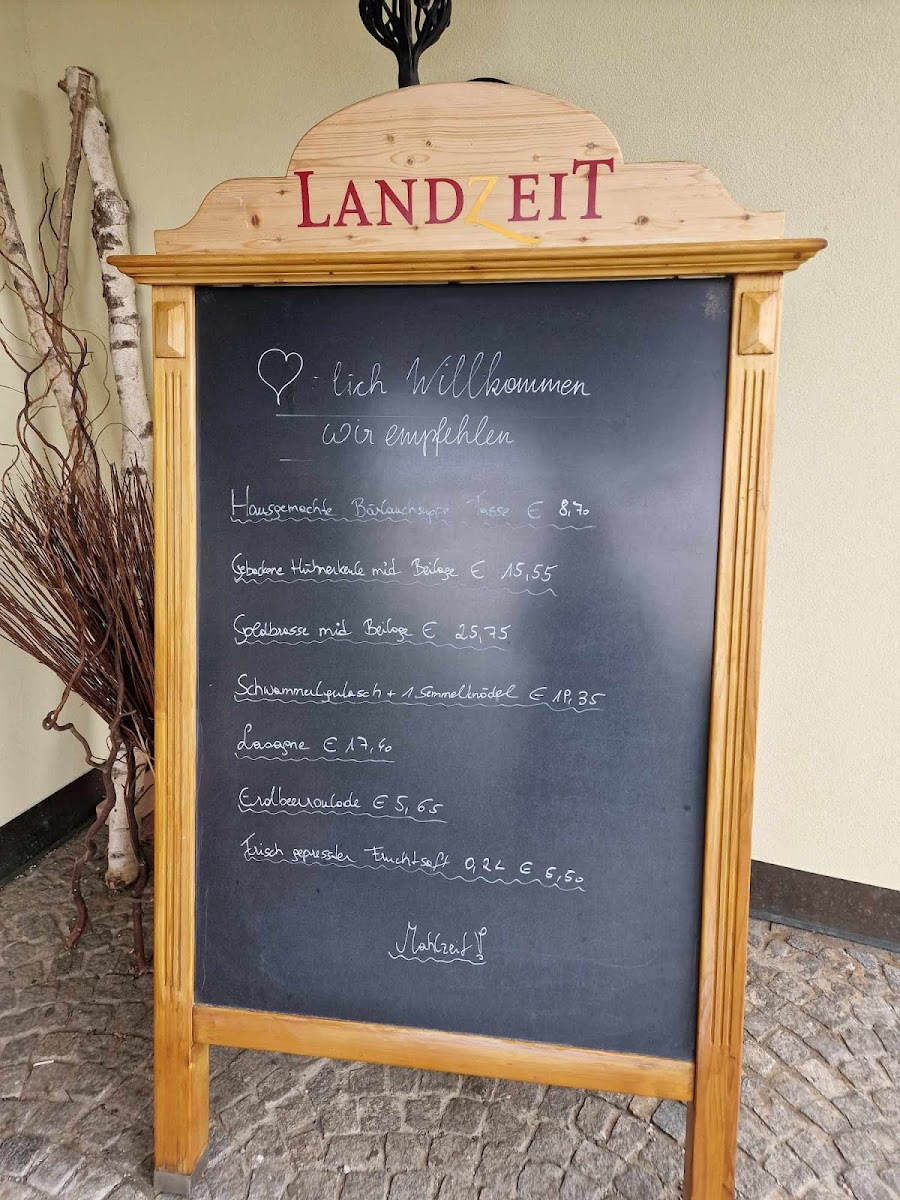 LANDZEIT
♡-lich Willkommen
wir empfehlen
Hausgemachte Bärlauchsuppe Tasse € 8,70
Gebackene Hühnerkeule mid Beilage € 15,55
Goldbrasse mid Beilage € 25,75
Schwammerlgulasch + 1 Semmelknödel € 35
Lasagne € 17,40
Erdbeerroulade € 5,65
Frisch gepresster Fruchtsaft 0,2L € 50
Mahlzeit!